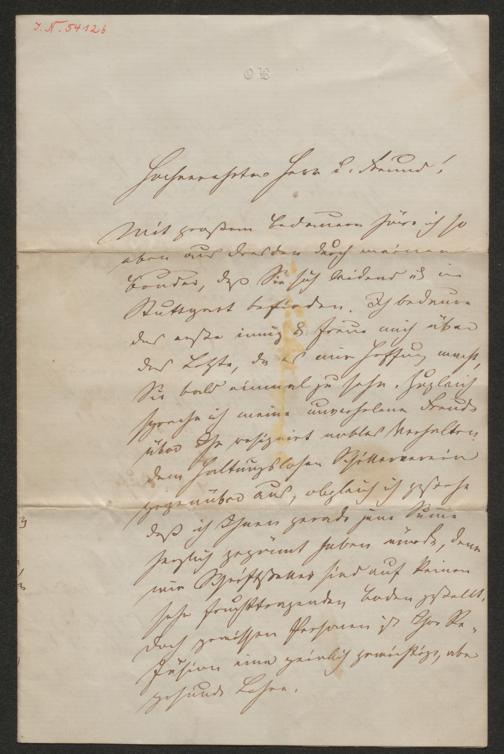 J. N. 54126
OB
Hochverehrter Herr u. Freund!
Mit großem Bedauern höre ich so
eben aus Dresden durch meinen
Bruder, daß Sie sich leidend in
Stuttgart befinden. Ich bedaure
das erste innig & freue mich über
das Letzte, da es mir Hoffnung macht,
Sie bald einmal zu sehn. Zugleich
spreche ich meine unverholene Freude
über Ihr resignirt nobles Verhalten
dem haltungslosen Schillerverein
gegenüber aus, obgleich ich gestehe
daß ich Ihnen gerade jene Summe
herzlich gegönnt haben würde, denn
wir Schriftsteller sind auf keinen
sehr fruchttragenden Boden gestellt.
Doch gewissen Personen ist Ihre Re-
füsion eine peinlich gewichtige, aber
gesunde Lehre.